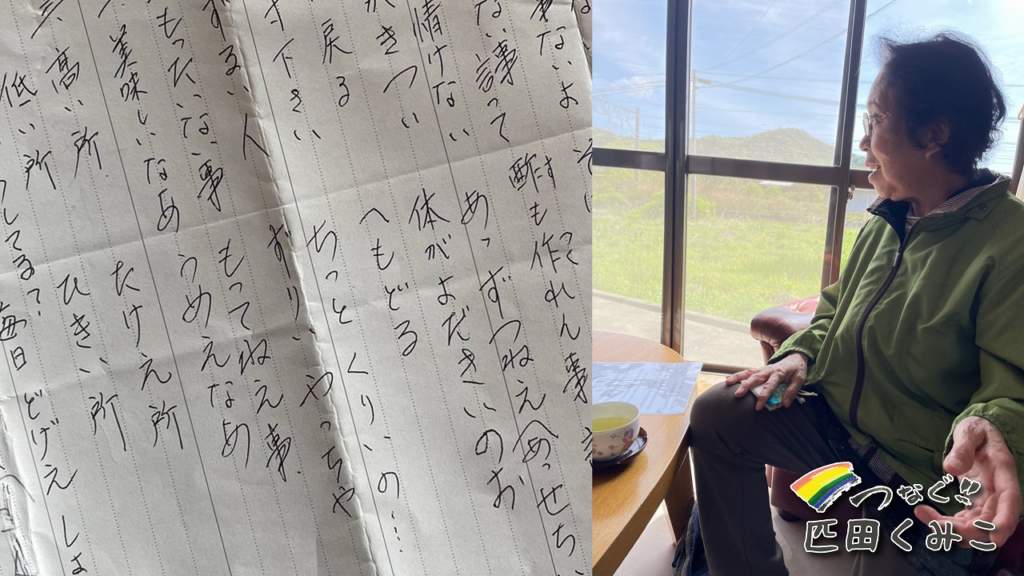 事ないよ
酢も作れん事
す
ない事って
めっずつねえ(めっせち
情けない
体がよだきいのお
きつい
へもどる
戻る
ちっとくりいの…
下さい
する人
ずりいやっちゃ
もったいない事
もってねえ事
美味しいなあ
うめえなあ
高い所
たけえ所
低い所
ひきい所
してる?毎日どげえしよ
つなぐ
匹田くみこ